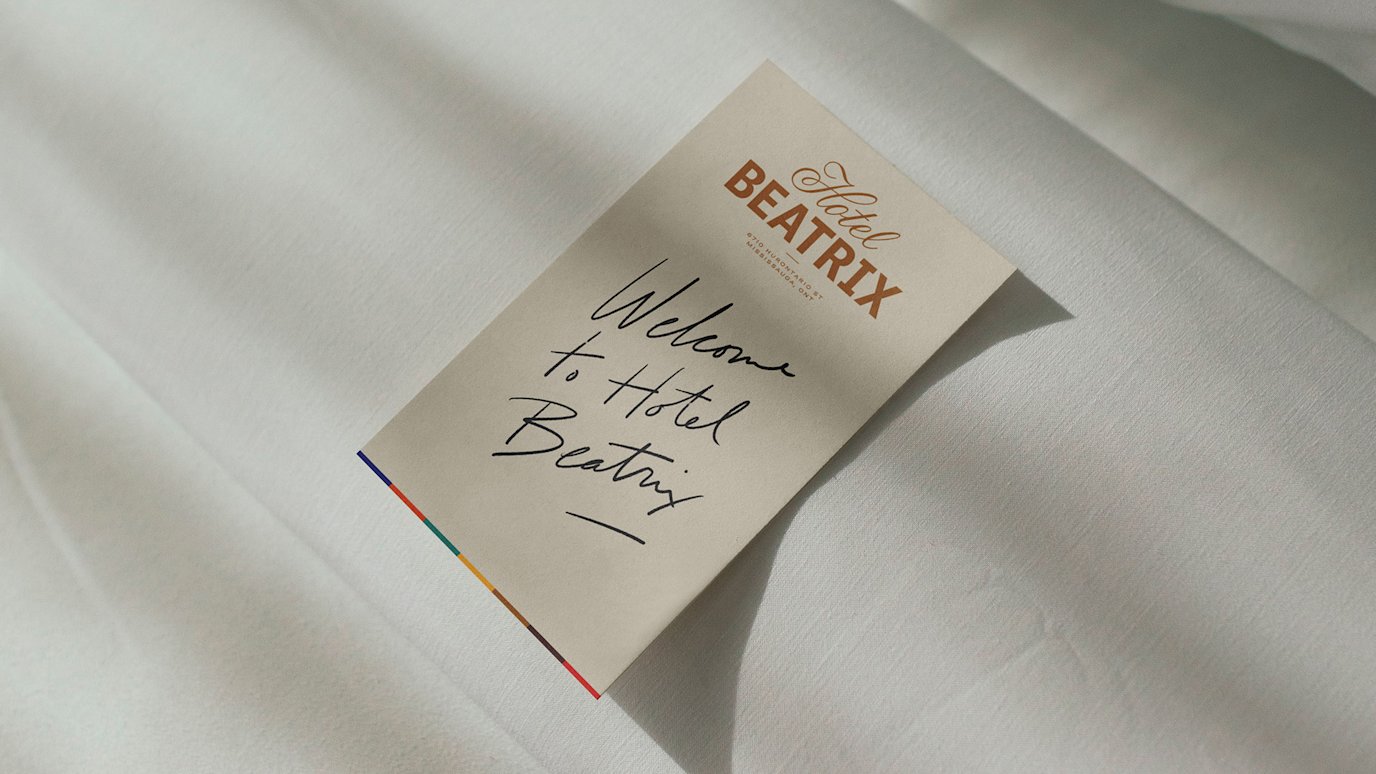 Hotel
BEATRIX
6710 HURONTARIO ST
MISSISSAUGA, ONT
Welcome
to Hotel
Beatrix